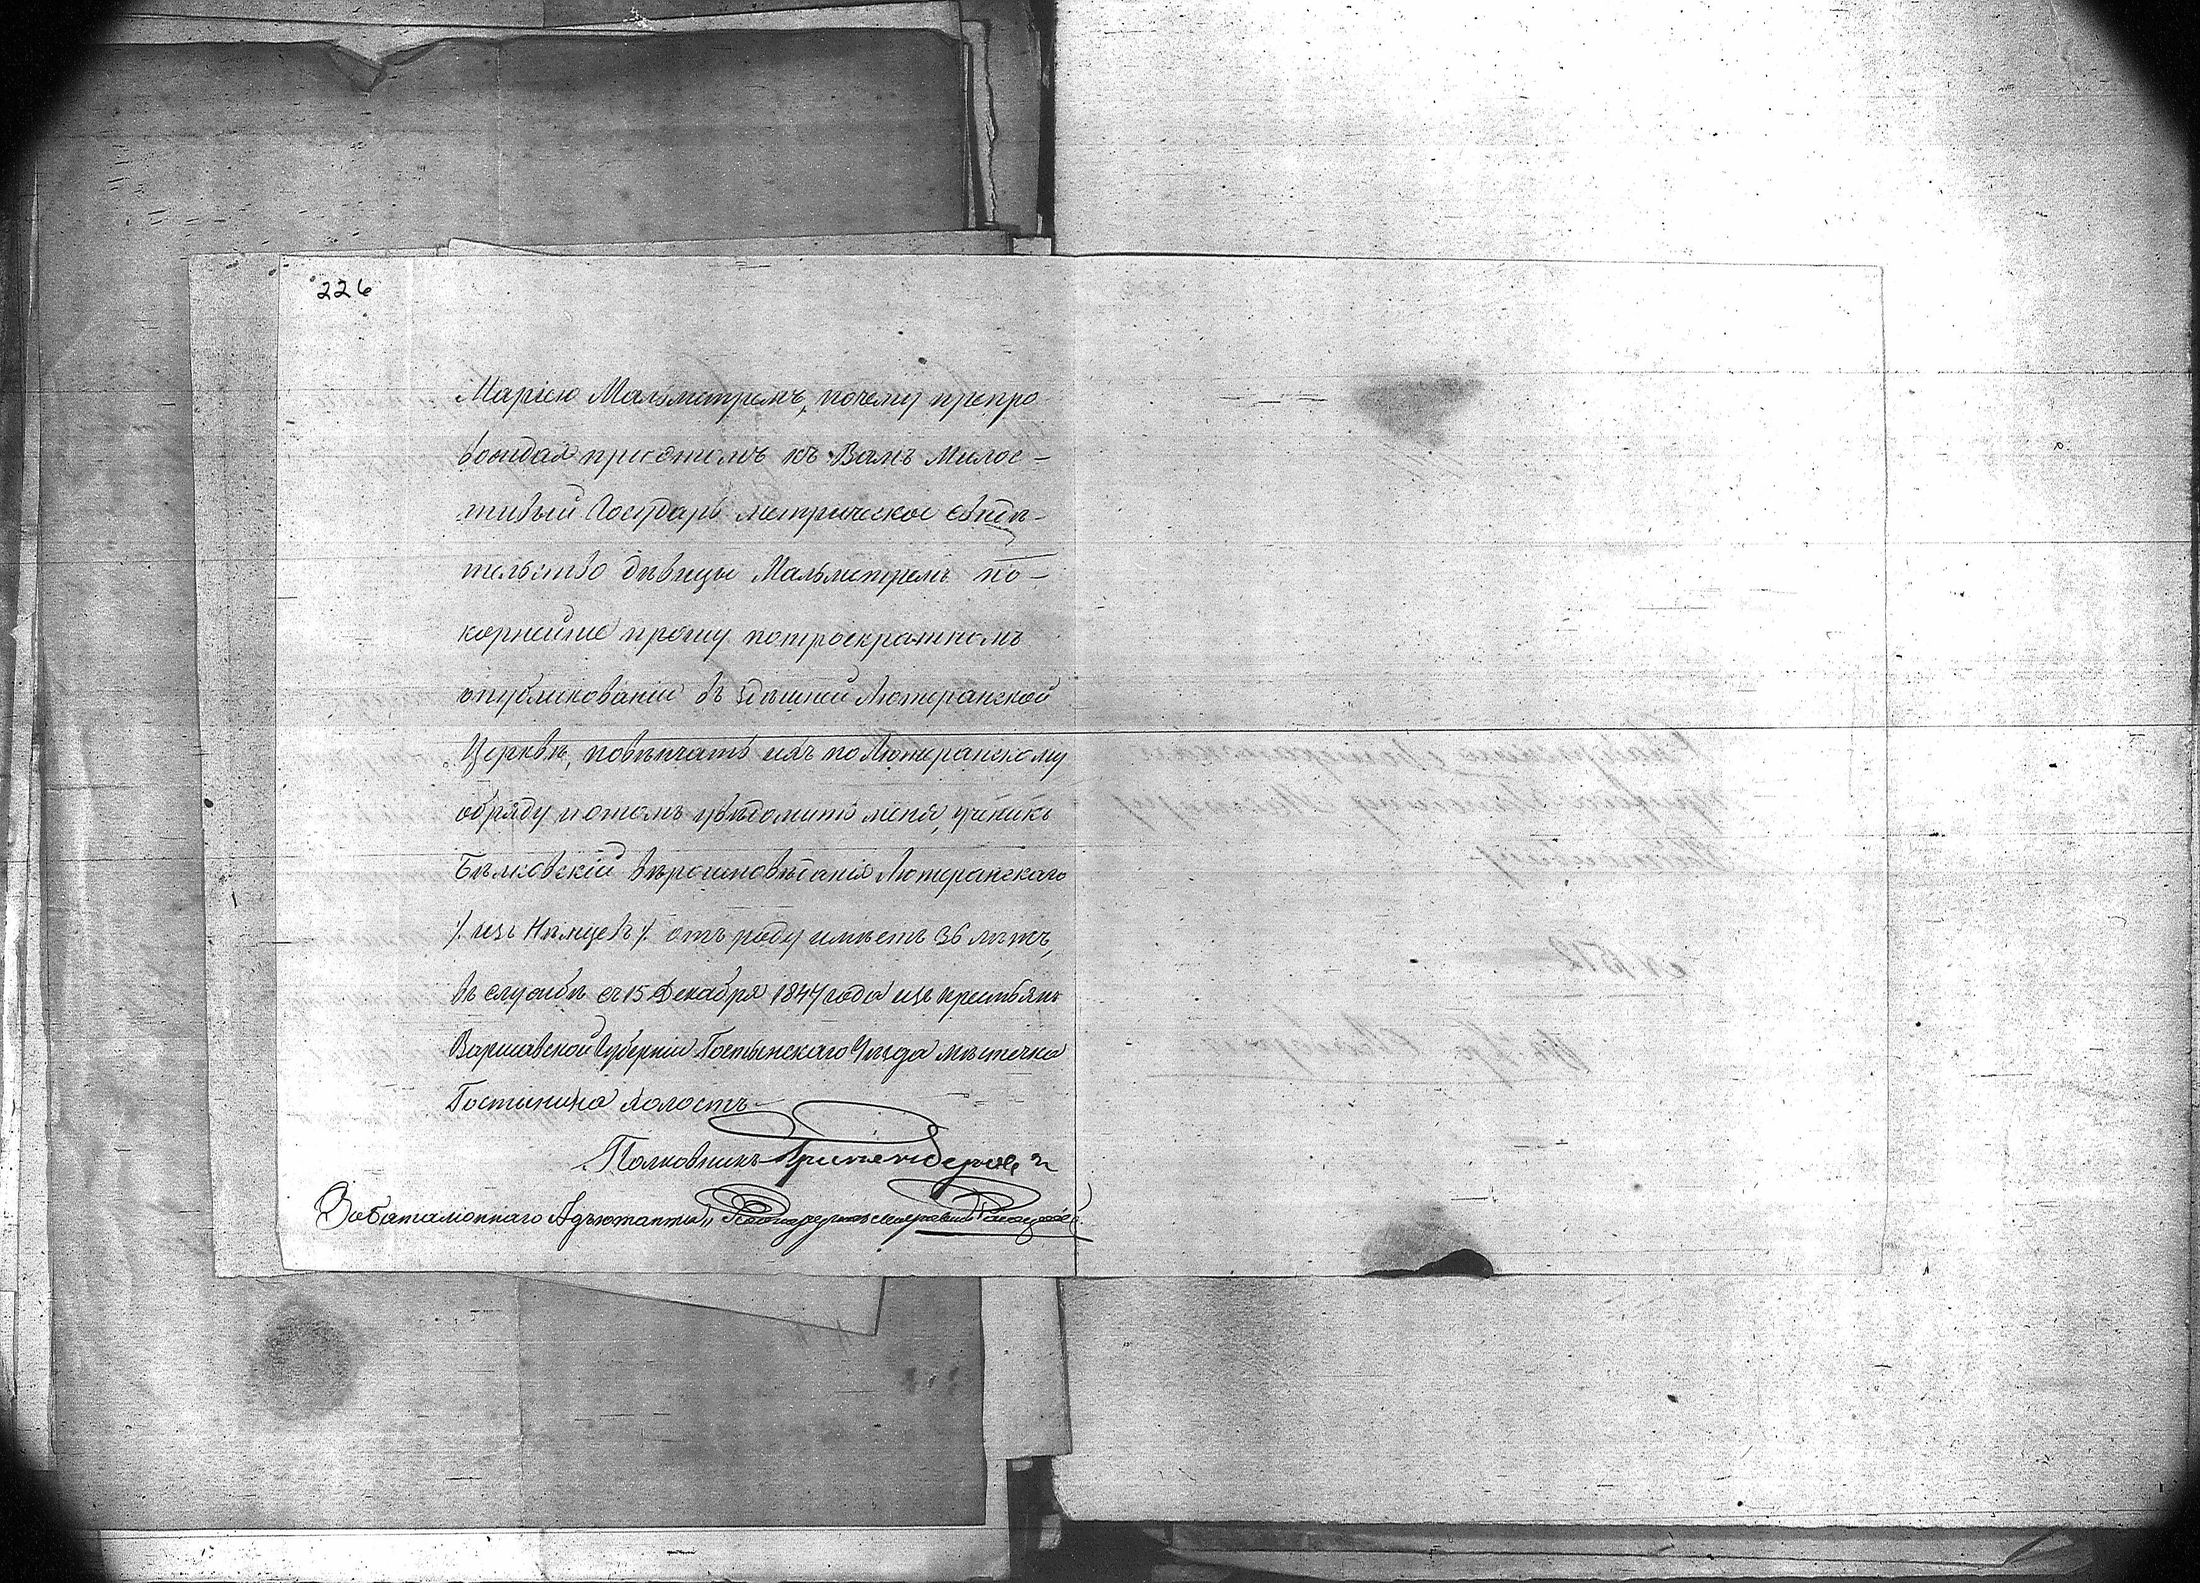 226
Маріею Мальмстремъ, почему препро
вождая при семъ къ Вамъ Милос-
тивый Государь метрическое свидѣ-
тельство дѣвицы Мальмстремъ по-
корнейше прошу по троекратномъ
опубликованіи въ здѣшней Лютеранской
Церквѣ, повѣнчать ихъ по Лютеранскому
обряду и о томъ увѣдомить меня, ученикъ
Бѣлковскій вѣроисповѣданія Лютеранскаго
/. изъ Нѣмцевъ /. отъ роду имѣетъ 36 лѣтъ,
въ службѣ съ 15 Декабря 1847 года изъ крестьянъ
Варшавской Губерніи Гостынскаго Уѣзда мѣстечка
Гостынина холостъ
Полковникъ
За баталіоннаго Адъютанта,